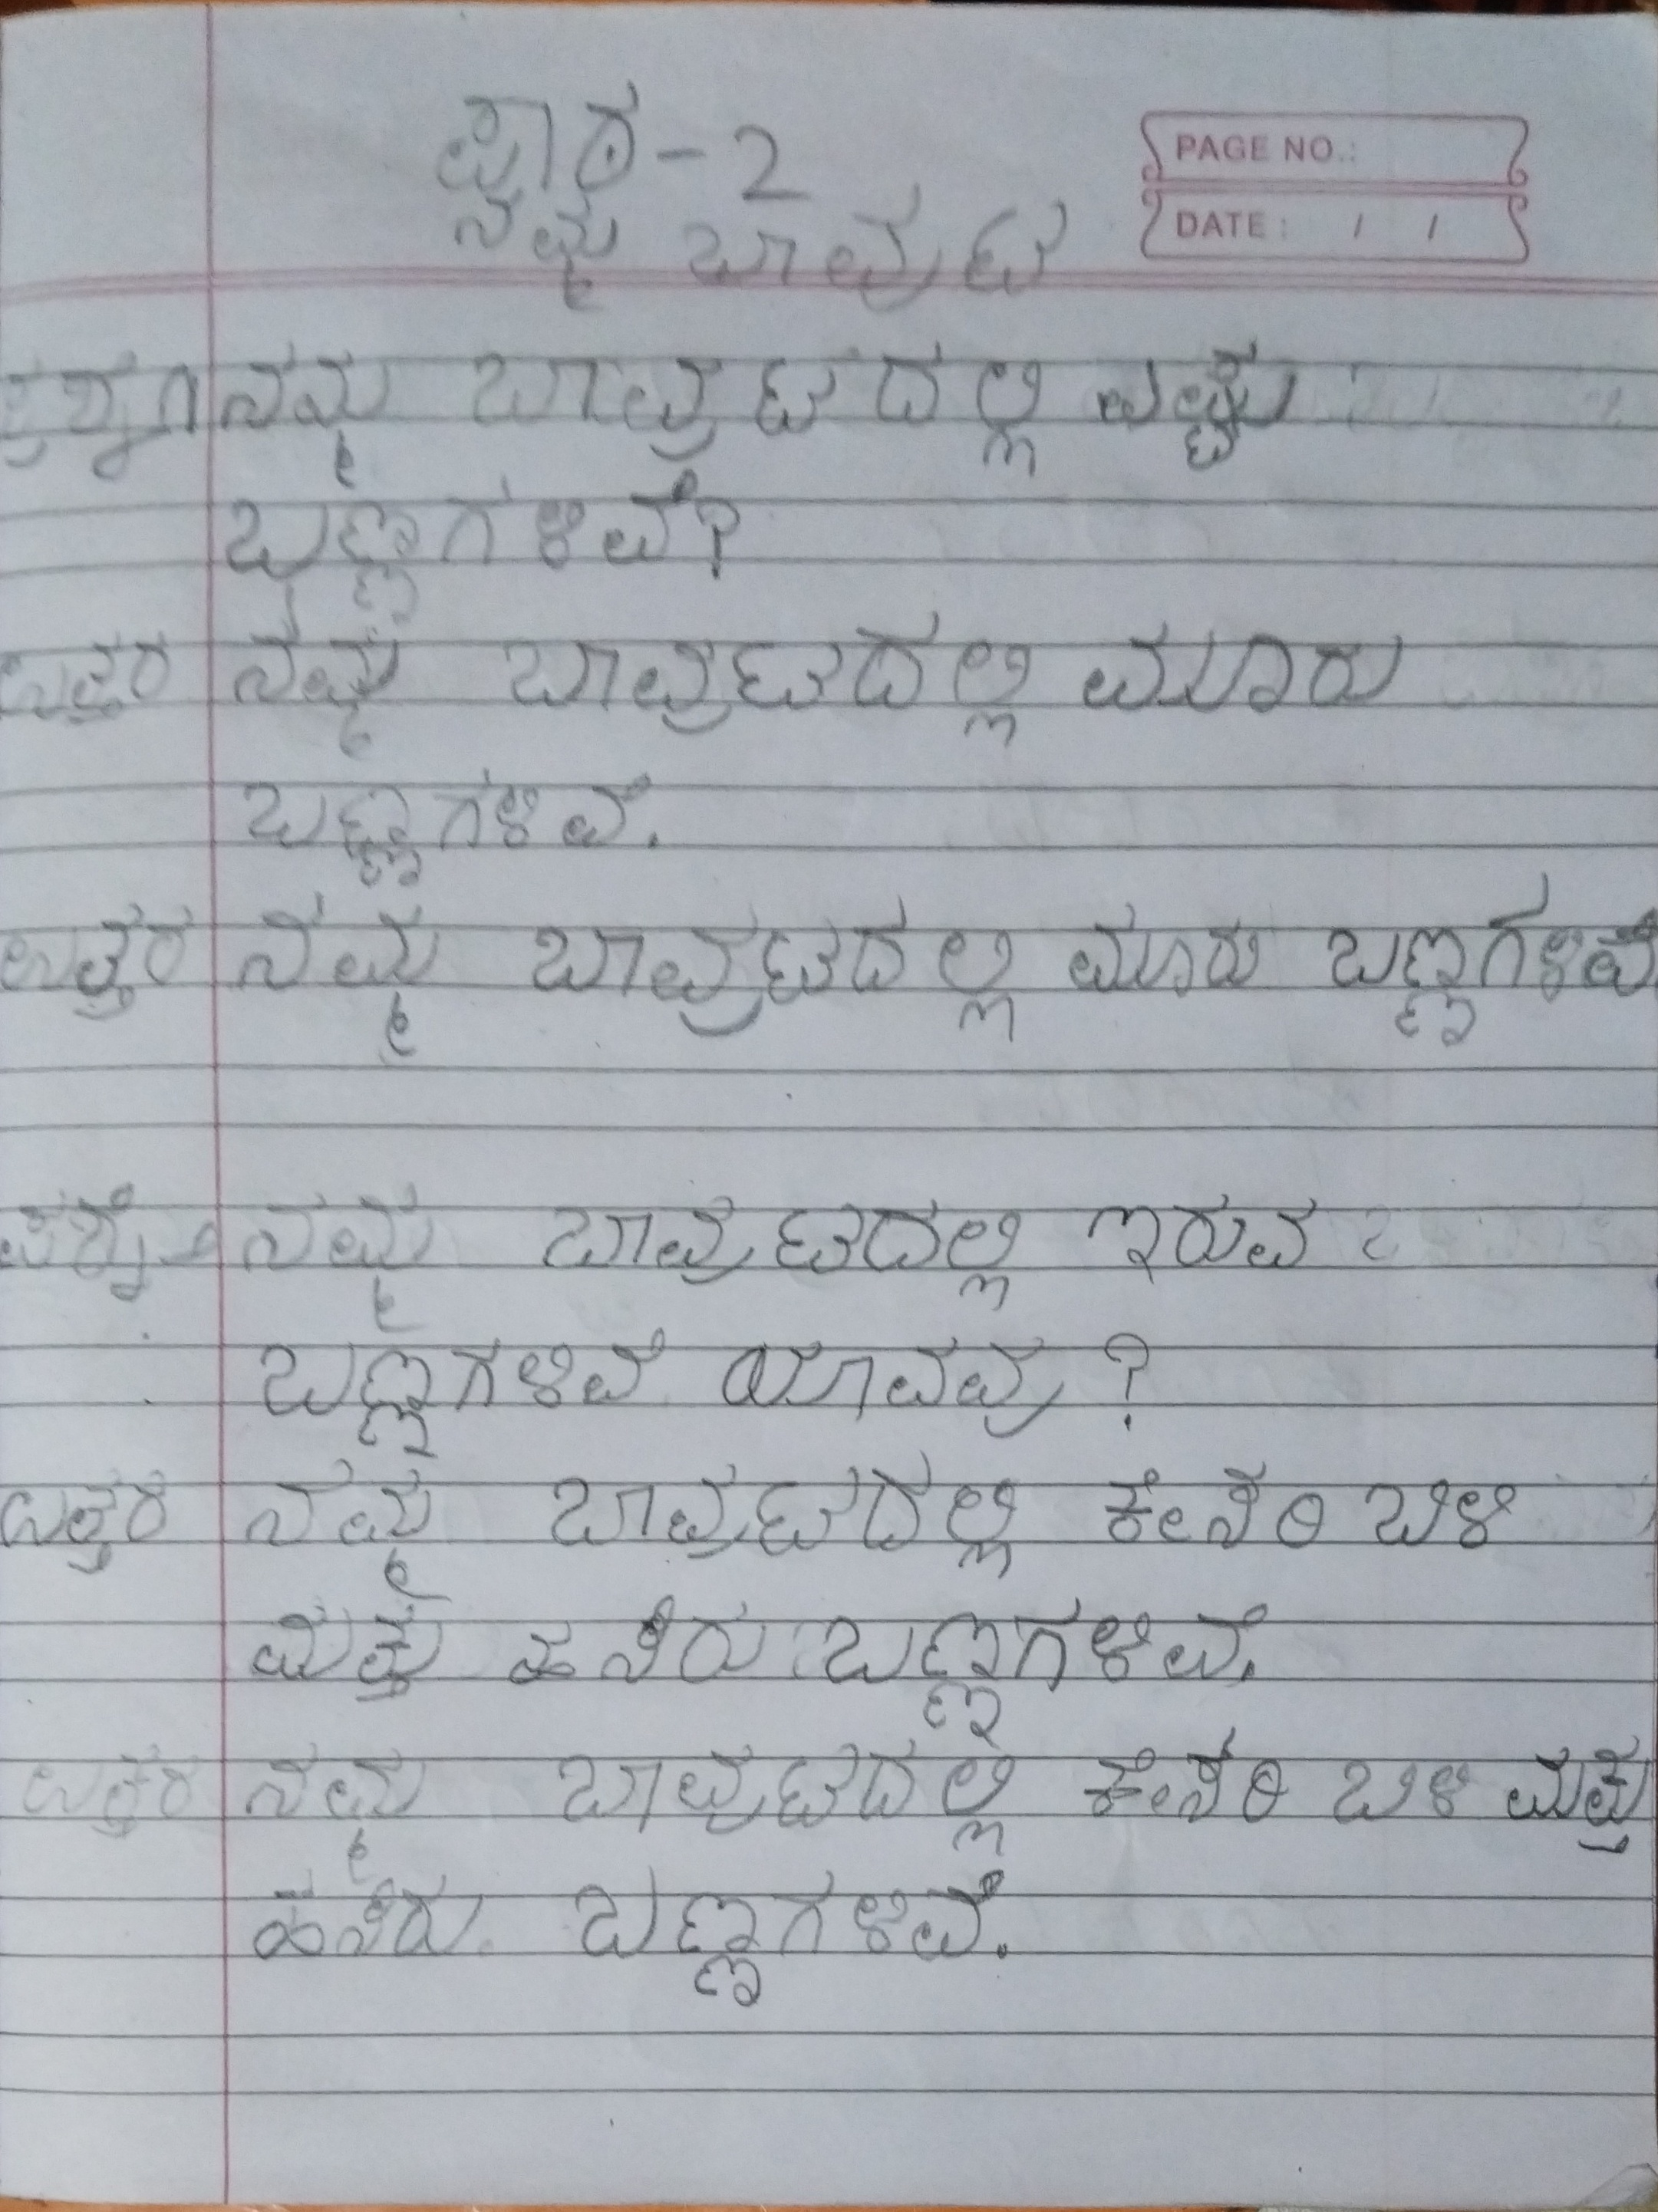 ಪಾಠ - 2
PAGE NO.:
ನಮ್ಮ ಬಾವುಟ
DATE: / /
ಪ್ರಶ್ನೆ ೧ ನಮ್ಮ ಬಾವುಟದಲ್ಲಿ ಎಷ್ಟು
ಬಣ್ಣಗಳಿವೆ?
ಉತ್ತರ ನಮ್ಮ ಬಾವುಟದಲ್ಲಿ ಮೂರು
ಬಣ್ಣಗಳಿವೆ.
ಉತ್ತರ ನಮ್ಮ ಬಾವುಟದಲ್ಲಿ ಮೂರು ಬಣ್ಣಗಳಿವೆ.
ನಮ್ಮ ಬಾವುಟದಲ್ಲಿ ಇರುವ
ಬಣ್ಣಗಳಿವೆ ಯಾವವು ?
ಉತ್ತರ ನಮ್ಮ ಬಾವುಟದಲ್ಲಿ ಕೇಸರಿ ಬಿಳಿ
ಮತ್ತು ಹಸಿರು ಬಣ್ಣಗಳಿವೆ.
ಉತ್ತರ ನಮ್ಮ ಬಾವುಟದಲ್ಲಿ ಕೇಸರಿ ಬಿಳಿ ಮತ್ತು
ಹಸಿರು ಬಣ್ಣಗಳಿವೆ.